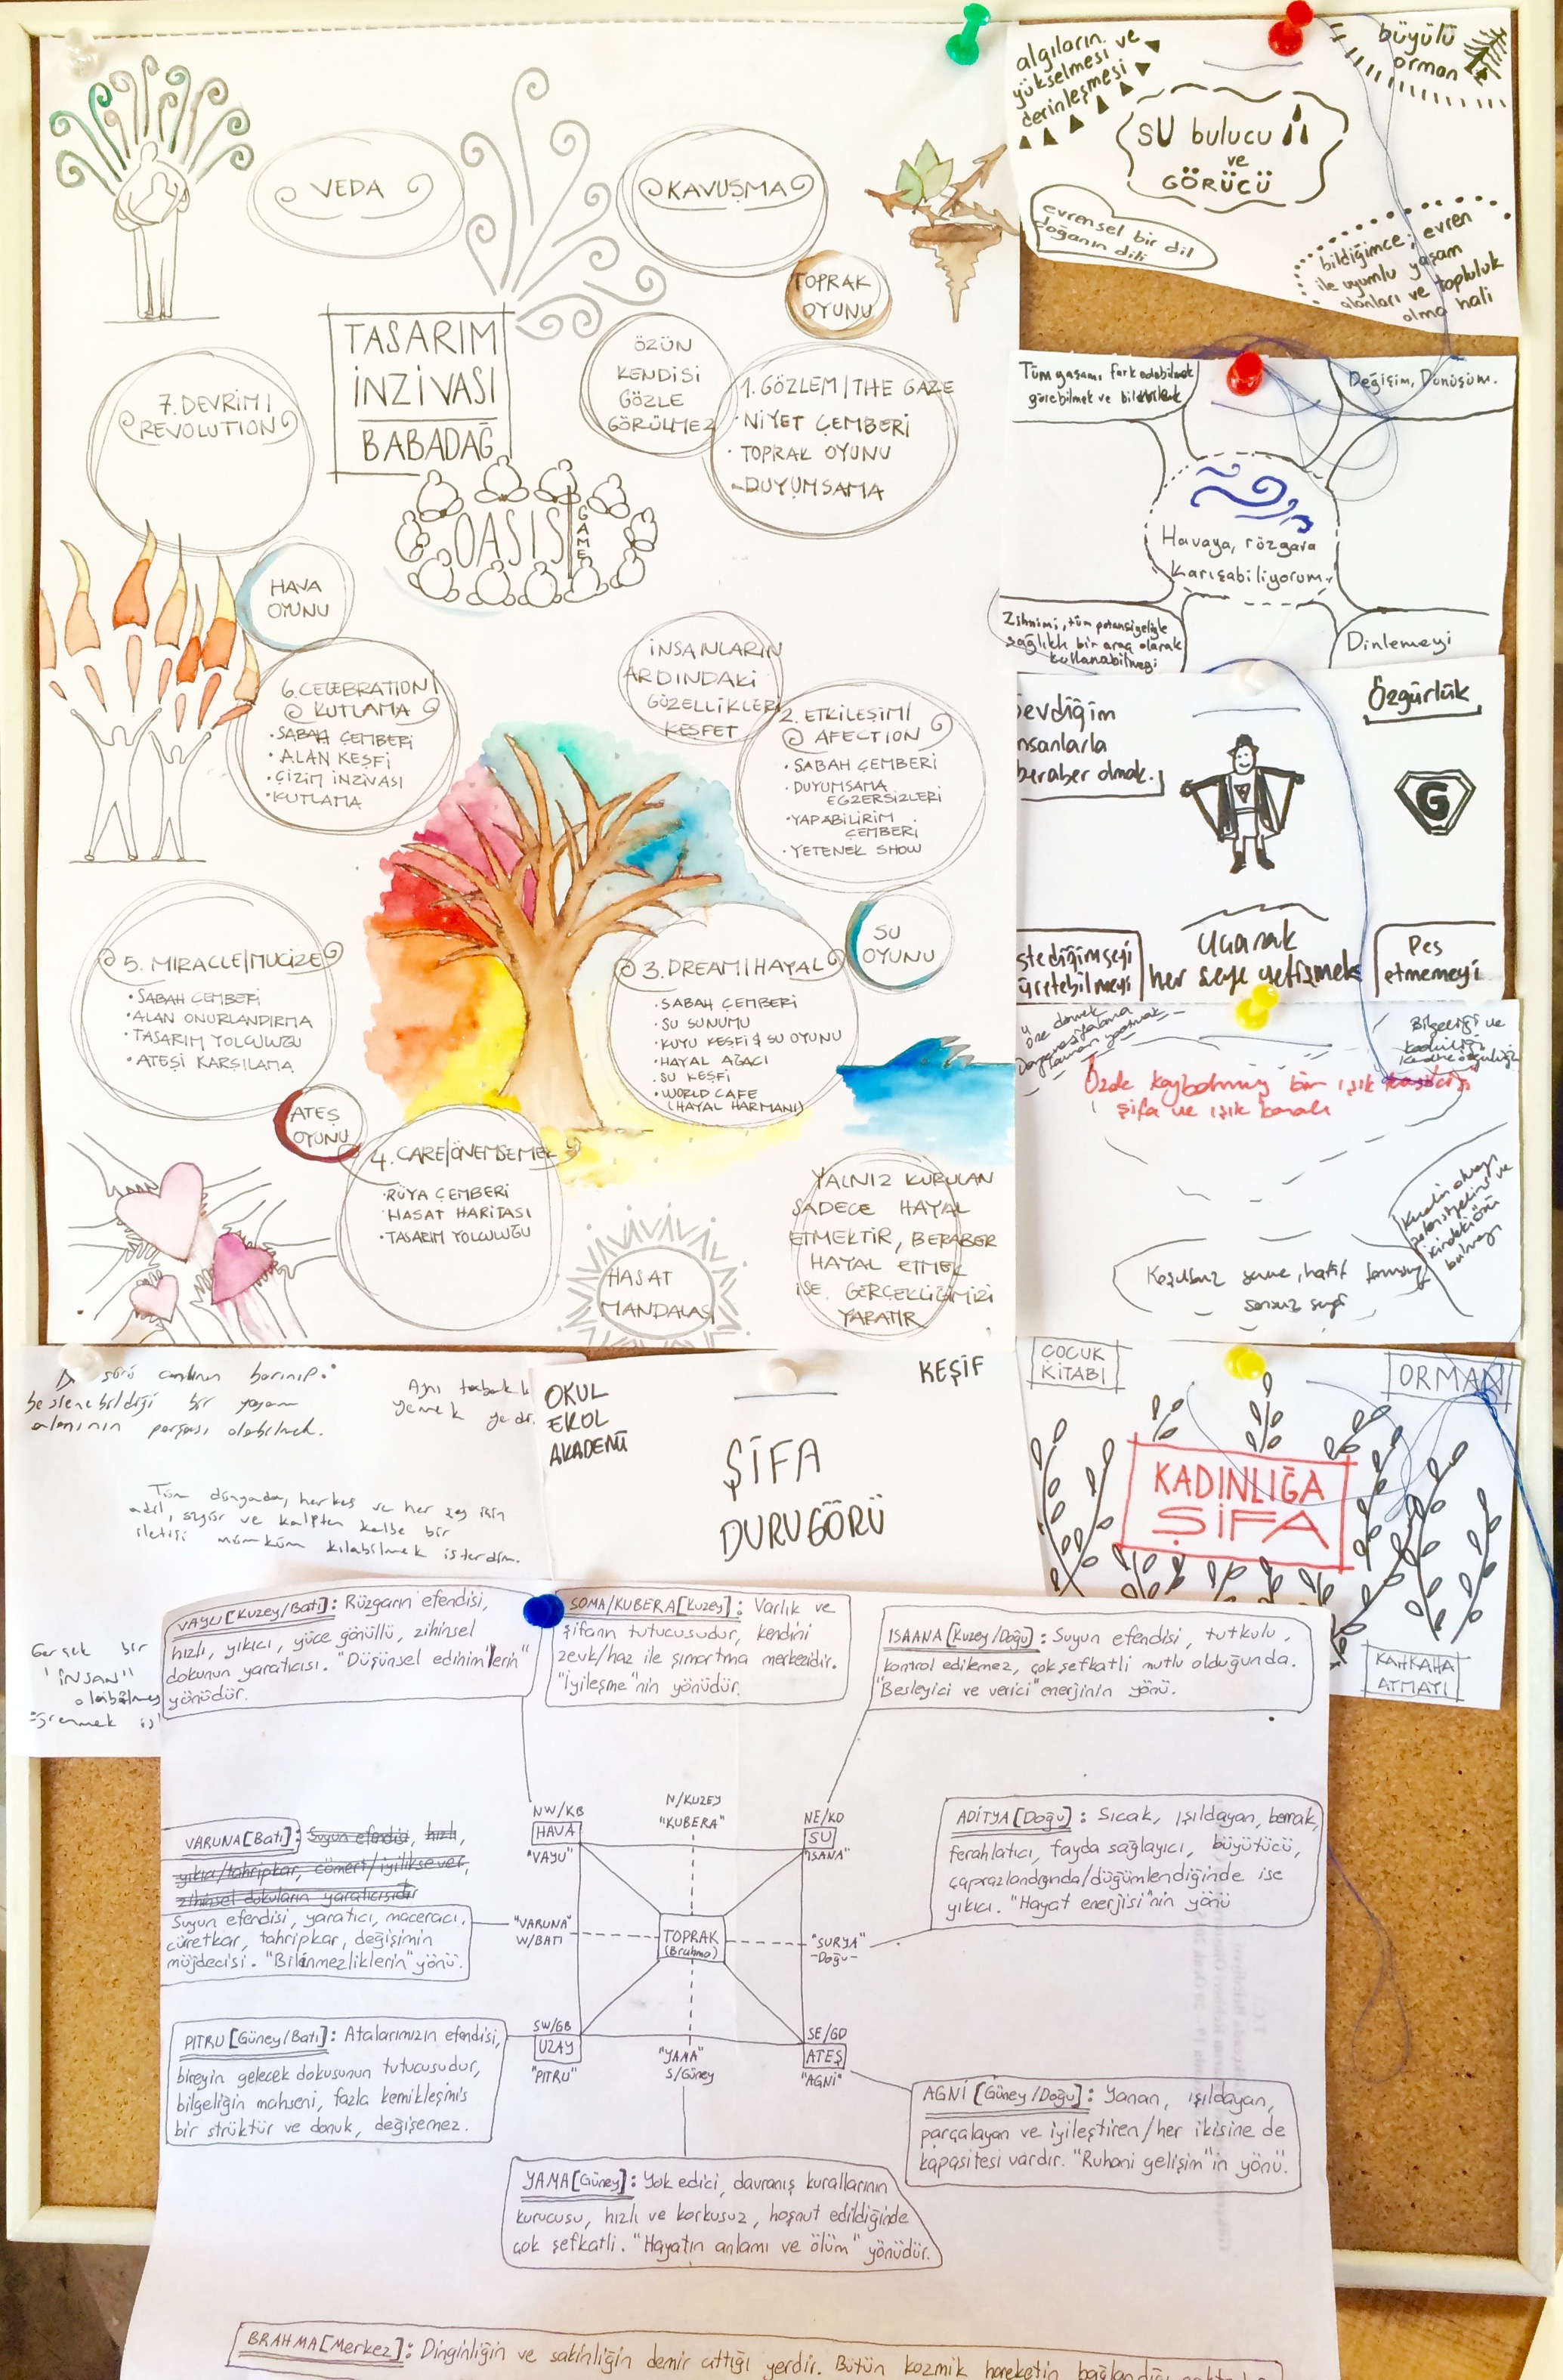 VEDA
KAVUŞMA
TOPRAK
OYUNU
TASARIM
İNZİVASI
BABADAĞ
ÖZÜN
KENDİSİ
GÖZLE
GÖRÜLMEZ
1. GÖZLEM/THE GAZE
· NİYET ÇEMBERİ
· TOPRAK OYUNU
- DUYUMSAMA
7. DEVRİM/
REVOLUTION
OASIS
GAME
HAVA
OYUNU
İNSANLARIN
ARDINDAKİ
GÜZELLİKLERİ
KEŞFET
6. CELEBRATION/
KUTLAMA
· SABAH ÇEMBERİ
· ALAN KEŞFİ
· ÇİZİM İNZİVASI
· KUTLAMA
2. ETKİLEŞİM/
AFECTION
· SABAH ÇEMBERİ
· DUYUMSAMA
EGZERSİZLERİ
· YAPABİLİRİM
ÇEMBERİ
· YETENEK SHOW
SU
OYUNU
5. MIRACLE/MUCİZE
· SABAH ÇEMBERİ
· ALAN ONURLANDIRMA
· TASARIM YOLCULUĞU
· ATEŞİ KARŞILAMA
3. DREAM/HAYAL
· SABAH ÇEMBERİ
· SU SUNUMU
· KUYU KEŞFİ & SU OYUNU
· HAYAL AĞACI
· SU KEŞFİ
· WORLD CAFE
(HAYAL HARMANI)
ATEŞ
OYUNU
4. CARE/ÖNEMSEMEK
· RÜYA ÇEMBERİ
· HASAT HARİTASI
· TASARIM YOLCULUĞU
HASAT
MANDALASI
YALNIZ KURULAN
SADECE HAYAL
ETMEKTİR, BERABER
HAYAL ETMEK
İSE GERÇEKLİĞİMİZİ
YARATIR
algıların
yükselmesi ve
derinleşmesi
büyülü
orman
SU bulucu
ve
GÖRÜCÜ
evrensel bir dil
doğanın dili
bildiğimce; evren
ile uyumlu yaşam
alanları ve topluluk
olma hali
Tüm yaşamı fark edebilmek
görebilmek ve bilebilmek
Değişim, Dönüşüm.
Havaya, rüzgara
Karışabiliyorum.
Zihnimi, tüm potansiyeliyle
sağlıklı bir araç olarak
kullanabilmeyi
Dinlemeyi
Sevdiğim
insanlarla
beraber olmak.
Özgürlük
G
istediğim şeyi
üretebilmeyi
Uçarak
her şeye yetişmek
Pes
etmemeyi
Bilgeliği ve
Özde kaybolmuş bir ışık
şifa ve ışık
Kadın olmayı
potansiyelini ve
içindeki özü
bulmayı
Koşulsuz
sonsuz sevgi
sürü canlının barınıp;
beslenebildiği bir yaşam
alanının parçası olabilmek.
Aynı tabakta
yemek yedi
Tüm dünyada, herkes ve her şey için
adil, özgür ve kalpten kalbe bir
iletişi mümkün kılabilmek isterdim.
Gerçek bir
"İNSAN"
olabilmeyi
öğrenmek
OKUL
EKOL
AKADEMİ
KEŞİF
ŞİFA
DURUGÖRÜ
ÇOCUK
KİTABI
ORMAN
KADINLIĞA
ŞİFA
KAHKAHA
ATMAYI
VAYU [Kuzey/Batı]: Rüzgarın efendisi,
hızlı, yıkıcı, yüce gönüllü, zihinsel
dokunun yaratıcısı. "Düşünsel edinimlerin"
yönüdür.
SOMA/KUBERA [Kuzey]: Varlık ve
şifanın tutucusudur, kendini
zevk/haz ile şımartma merkezidir.
"İyileşme"nin yönüdür.
ISAANA [Kuzey/Doğu]: Suyun efendisi, tutkulu,
kontrol edilemez, çok şefkatli mutlu olduğunda.
"Besleyici ve verici" enerjinin yönü.
NW/KB
HAVA
"VAYU"
N/KUZEY
"KUBERA"
NE/KD
SU
"ISANA"
VARUNA [Batı]: Suyun efendisi, hızlı,
yıkıcı/tahripkar, cömert/iyiliksever,
zihinsel dokuların yaratıcısıdır
Suyun efendisi, yaratıcı, maceracı,
cüretkar, tahripkar, değişimin
müjdecisi. "Bilinmezliklerin" yönü.
ADITYA [Doğu]: Sıcak, ışıldayan, berrak,
ferahlatıcı, fayda sağlayıcı, büyütücü,
çaprazlandığında/düğümlendiğinde ise
yıkıcı. "Hayat enerjisi"nin yönü
"VARUNA"
W/BATI
TOPRAK
(Brahma)
"SURYA"
-Doğu-
PITRU [Güney/Batı]: Atalarımızın efendisi,
bireyin gelecek dokusunun tutucusudur,
bilgeliğin mahseni, fazla kemikleşmiş
bir strüktür ve donuk, değişemez.
SW/GB
UZAY
"PITRU"
"YAMA"
S/Güney
SE/GD
ATEŞ
"AGNI"
AGNİ [Güney/Doğu]: Yanan, ışıldayan,
parçalayan ve iyileştiren/her ikisine de
kapasitesi vardır. "Ruhani gelişim"in yönü.
YAMA [Güney]: Yok edici, davranış kurallarının
kurucusu, hızlı ve korkusuz, hoşnut edildiğinde
çok şefkatli. "Hayatın anlamı ve ölüm" yönüdür.
BRAHMA [Merkez]: Dinginliğin ve sakinliğin demir attığı yerdir. Bütün kozmik hareketin bağlandığı